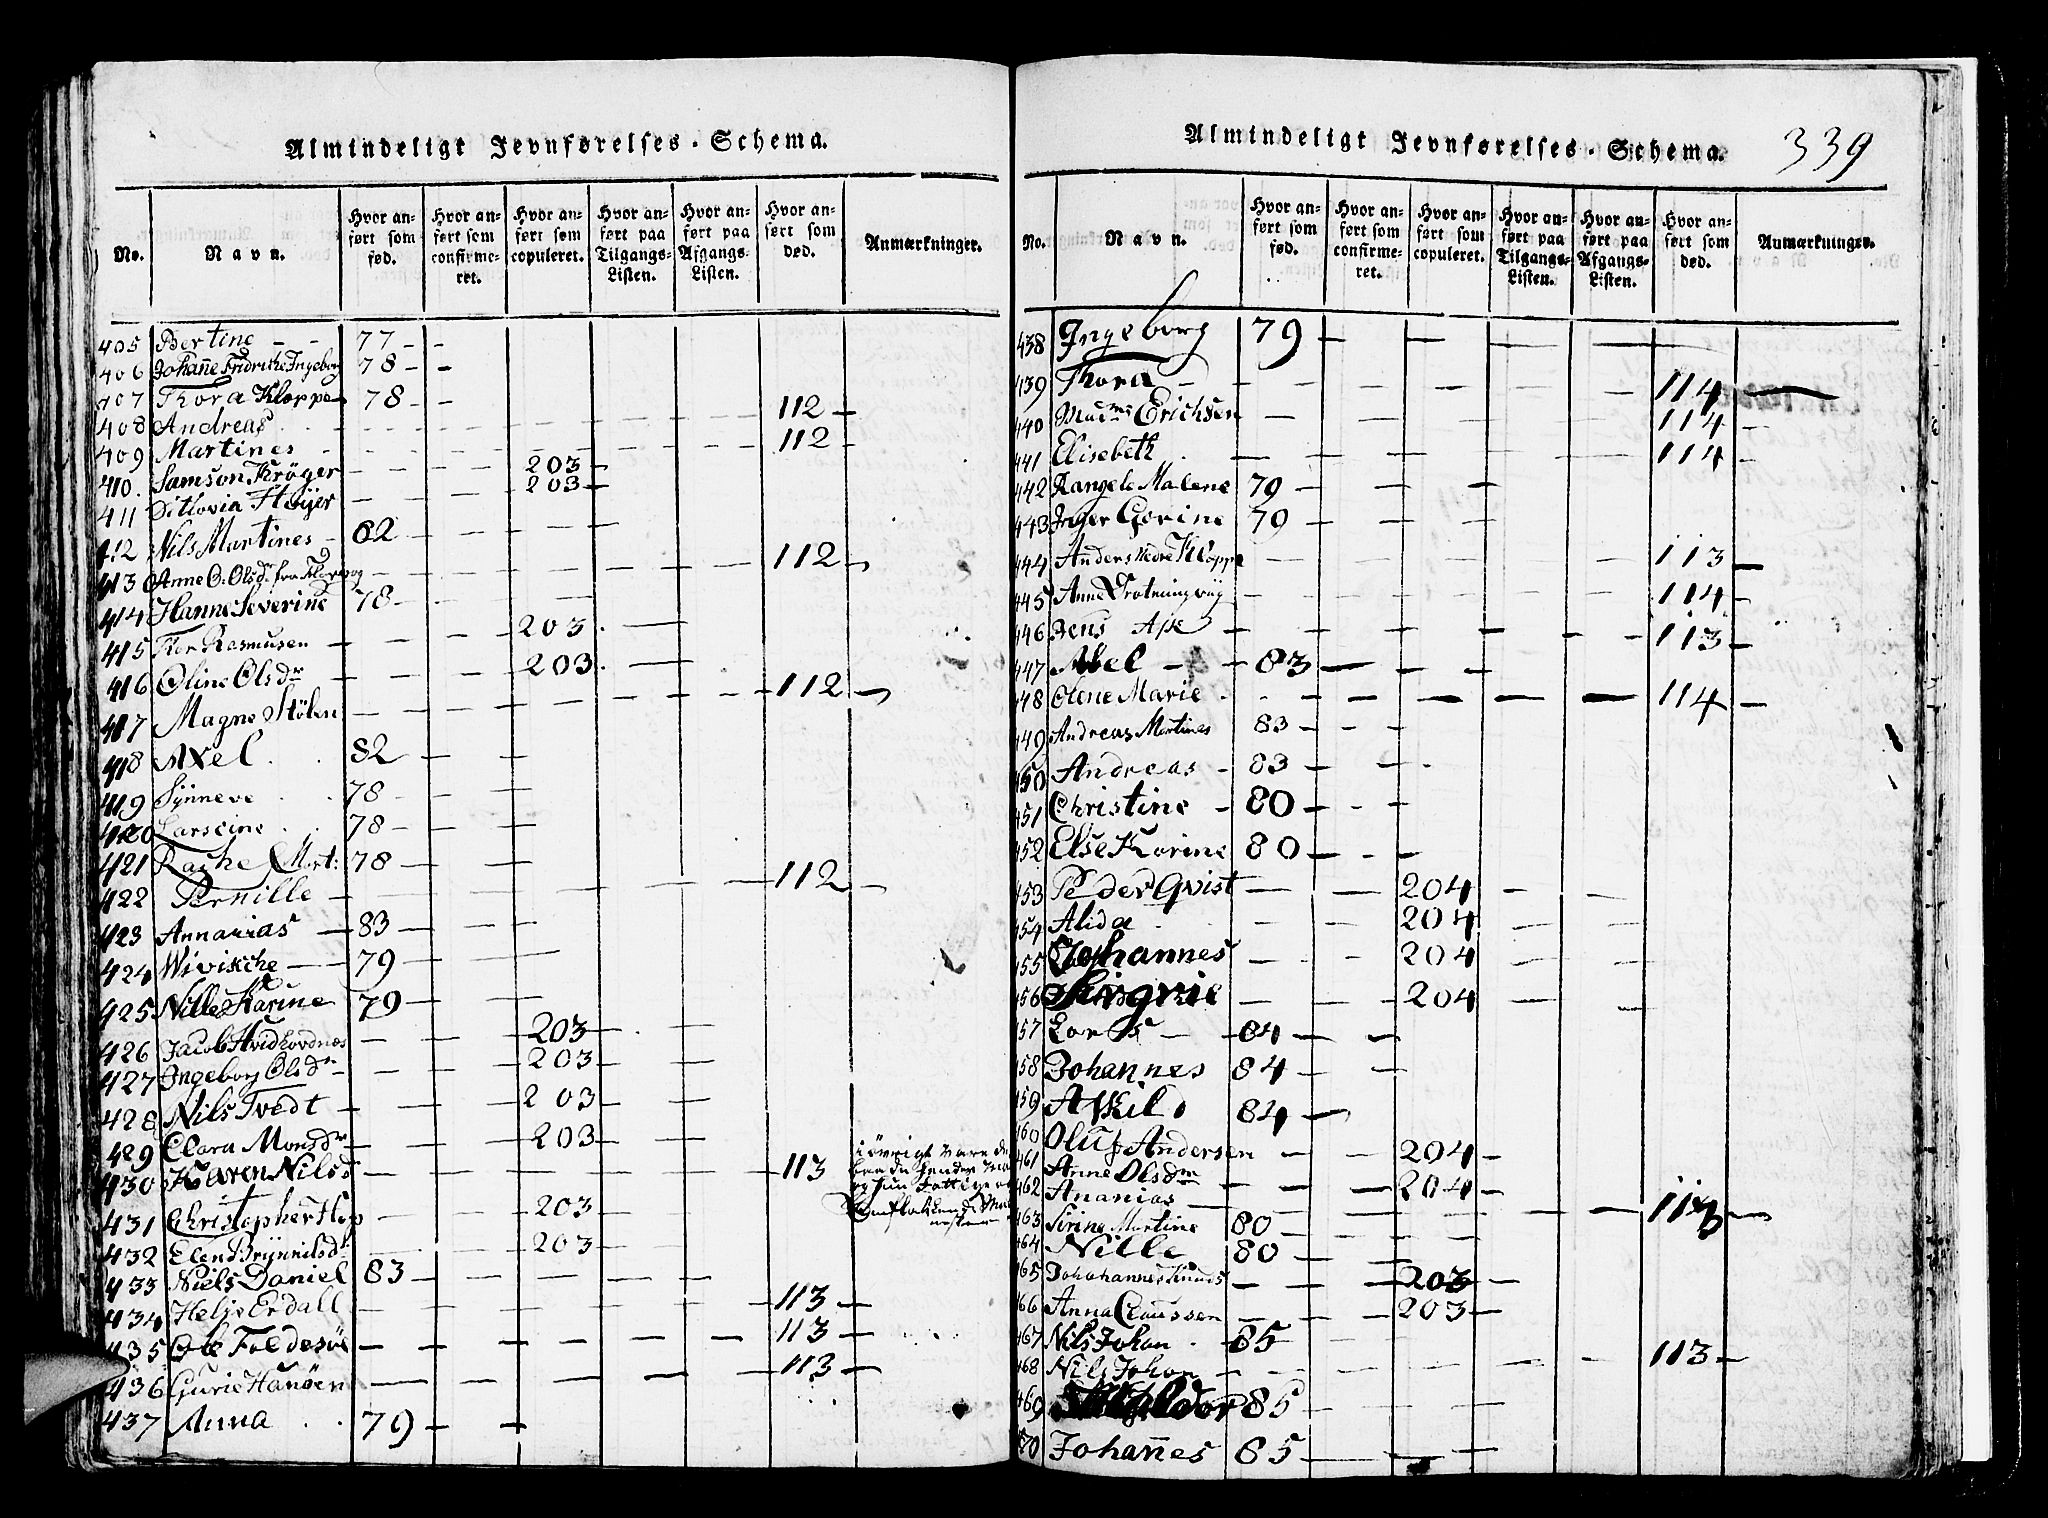 Almindeligt Jevnførelses-Schema.
No. Navn. Hvor anført som fød. Hvor anført som confirmeret. Hvor anført som copuleret. Hvor anført paa Tilgangs-Listen. Hvor anført paa Afgangs-Listen. Hvor anført som død. Anmærkninger.
405 Bertine 77
406 Johanne Fridrikke Ingeborg 78
407 Thora Kloppe 78
408 Andreas 112
409 Martines 112
410 Samson Krøger 203
411 Ditlovia Høyer 203
412 Nils Martines 82
413 Anne O: Olsdr fra 112
414 Hanne Severine 78
415 Tor Rasmusen 203
416 Oline Olsdr 203
417 Magne Stölen 112
418 Axel 82
419 Synneve 78
420 Larseine 78
421 Rachel Mort: 78
422 Pernille 112
423 Annanias 83
424 Wivikche 79
425 Nille Karine 79
426 Jacob Hvid 203
427 Ingeborg Olsdr 203
428 Nils Tvedt 203
429 Clara Monsdr 203
430 Karen Nilsd 113
431 Christopher Hop 203
432 Elen Brynnilsdr 203
433 Niels Daniel 83
434 Helje Erdall 113
435 Ole Foldesöe 113
436 Gurie Hansen 113
437 Anna 79
Almindeligt Jevnførelses-Schema. 339
No. Navn. Hvor anført som fød. Hvor anført som confirmeret. Hvor anført som copuleret. Hvor anført paa Tilgangs-Listen. Hvor anført paa Afgangs-Listen. Hvor anført som død. Anmærkninger.
438 Ingeborg 79
439 Thora 114
440 Madme Erichsen 114
441 Elisebeth 114
442 Rangele Malene 79
443 Inger Gorine 79
444 Anders Kloppe 113
445 Anne 114
446 Jens Aske 113
447 Abel 83
448 Olene Marie 114
449 Andreas Martines 83
450 Andreas 83
451 Christine 80
452 Else Korine 80
453 Peder Qvist 204
454 Alida 204
455 Johannes 204
456 Sirgrie 204
457 Lars 84
458 Johannes 84
459 Askil 84
460 Oluf Andersen 204
461 Anne Olsdr 204
462 Ananias 113
463 Sirine Martine 80
464 Nille 80
465 Johohannes Knuds 203
466 Anna Claussen 203
467 Nils Johan 85
468 Nils Johan 113
469 Haldor 85
470 Johannes 85